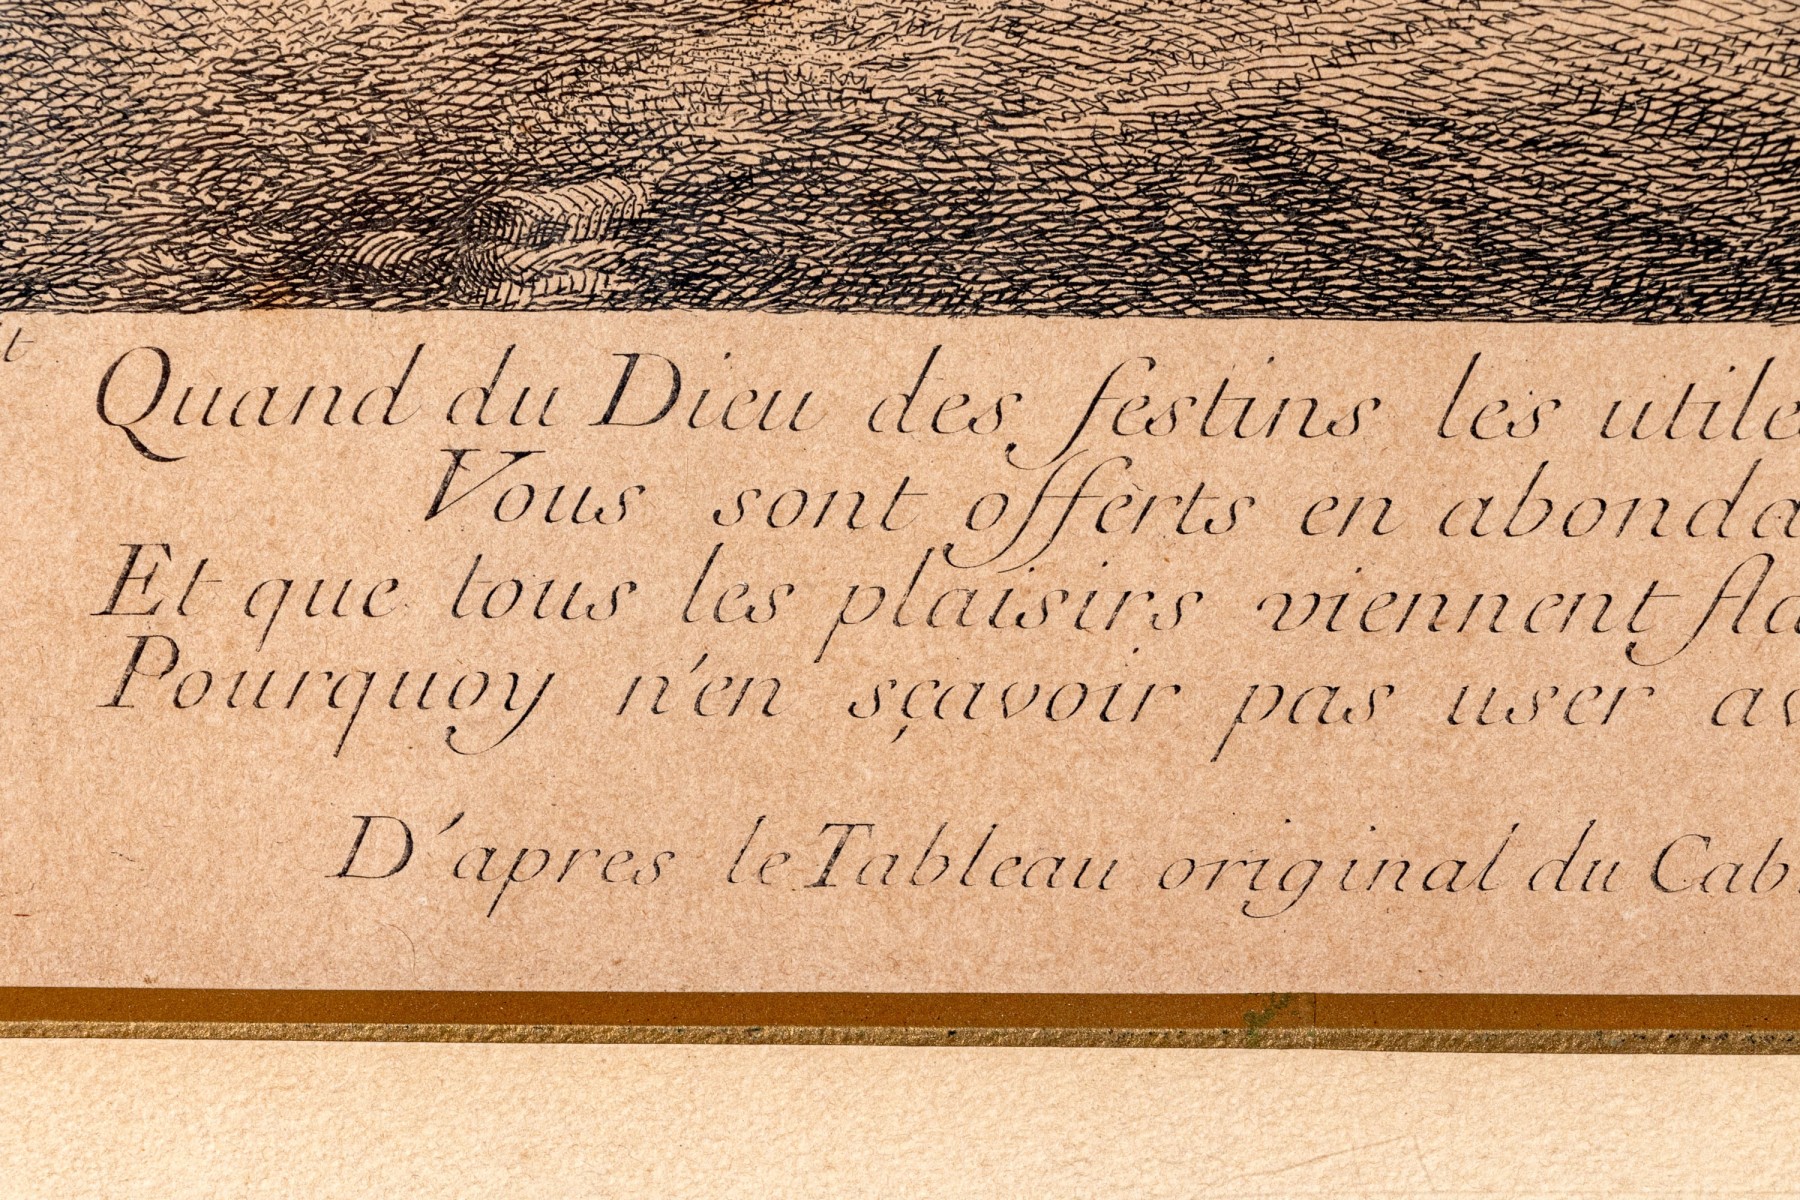 t
Quand du Dieu des festins les utile
Vous sont offerts en abonda
Et que tous les plaisirs viennent fla
Pourquoy n'en sçavoir pas user av
D'apres le Tableau original du Cab